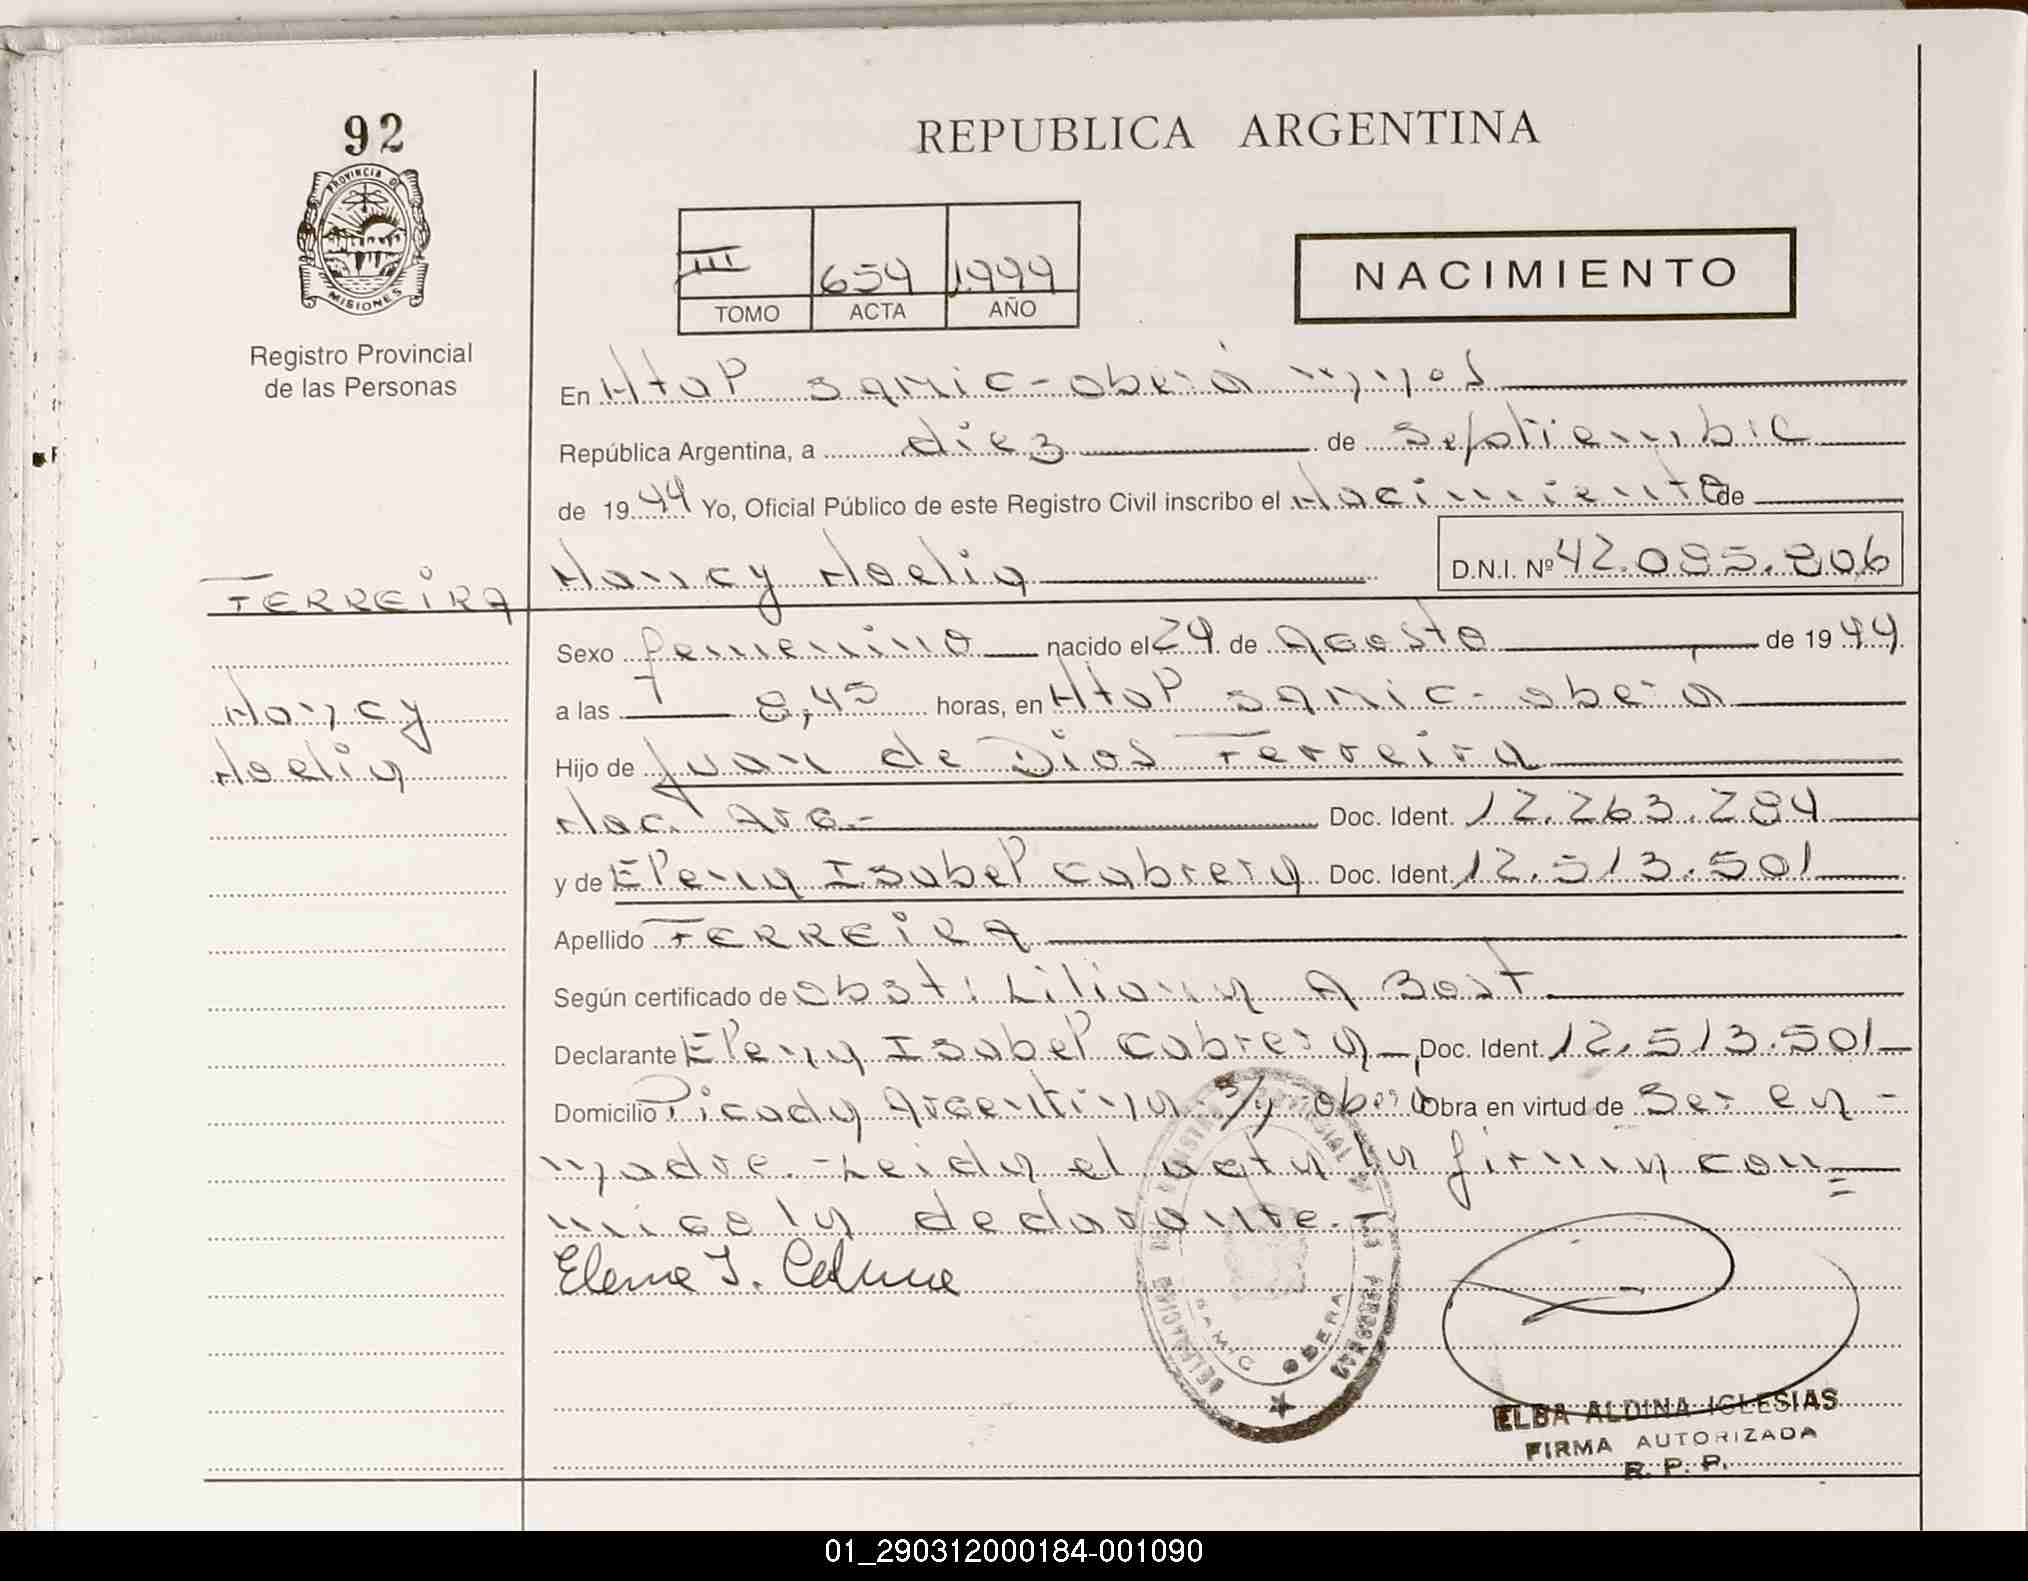 92
PROVINCIA D
MISIONES
Registro Provincial
de las Personas
REPUBLICA ARGENTINA
III 654 1999
TOMO ACTA AÑO
NACIMIENTO
En Htal samic-oberá mnes
República Argentina, a diez de septiembre
de 1999 Yo, Oficial Público de este Registro Civil inscribo el Nacimiento de
Nancy Noelia D.N.I. Nº 42.085.806
FERREIRA
Sexo femenino nacido el 24 de Agosto de 1999.
a las 8,45 horas, en Htal samic-oberá
Nancy
Noelia
Hijo de Juan de Dios Ferreira
Nac. Arg.- Doc. Ident. 12.263.284
y de Elena Isabel Cabrera Doc. Ident. 12.513.501
Apellido FERREIRA
Según certificado de obst: Liliana A Bost
Declarante Elena Isabel Cabrera Doc. Ident. 12.513.501
Domicilio Picada Argentina S/N oberá Obra en virtud de ser la-
madre.-Leida el acta la firman con=
migo la declarante.-
Elena I.
SAMIC OBERA
ELBA ALDINA IGLESIAS
FIRMA AUTORIZADA
R. P. P.
01_290312000184-001090